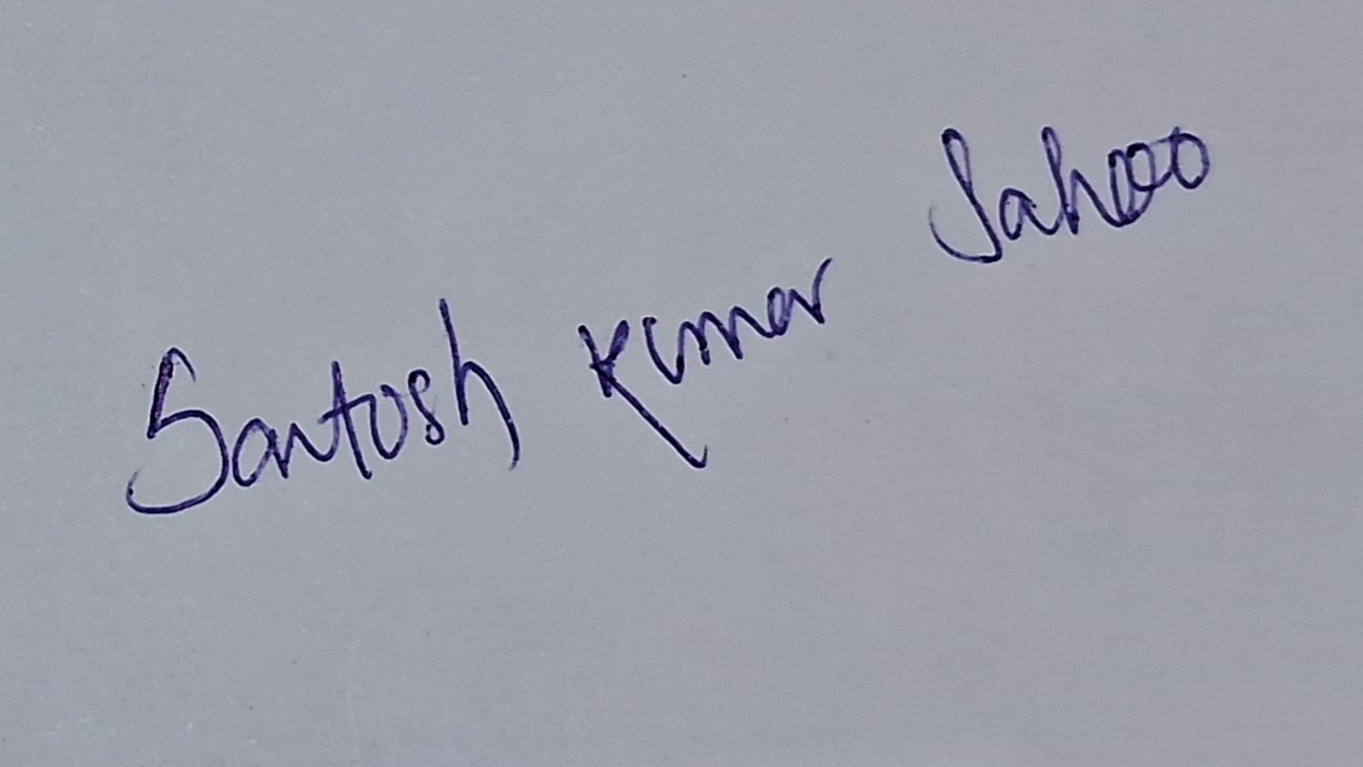 Santosh Kumar Sahoo